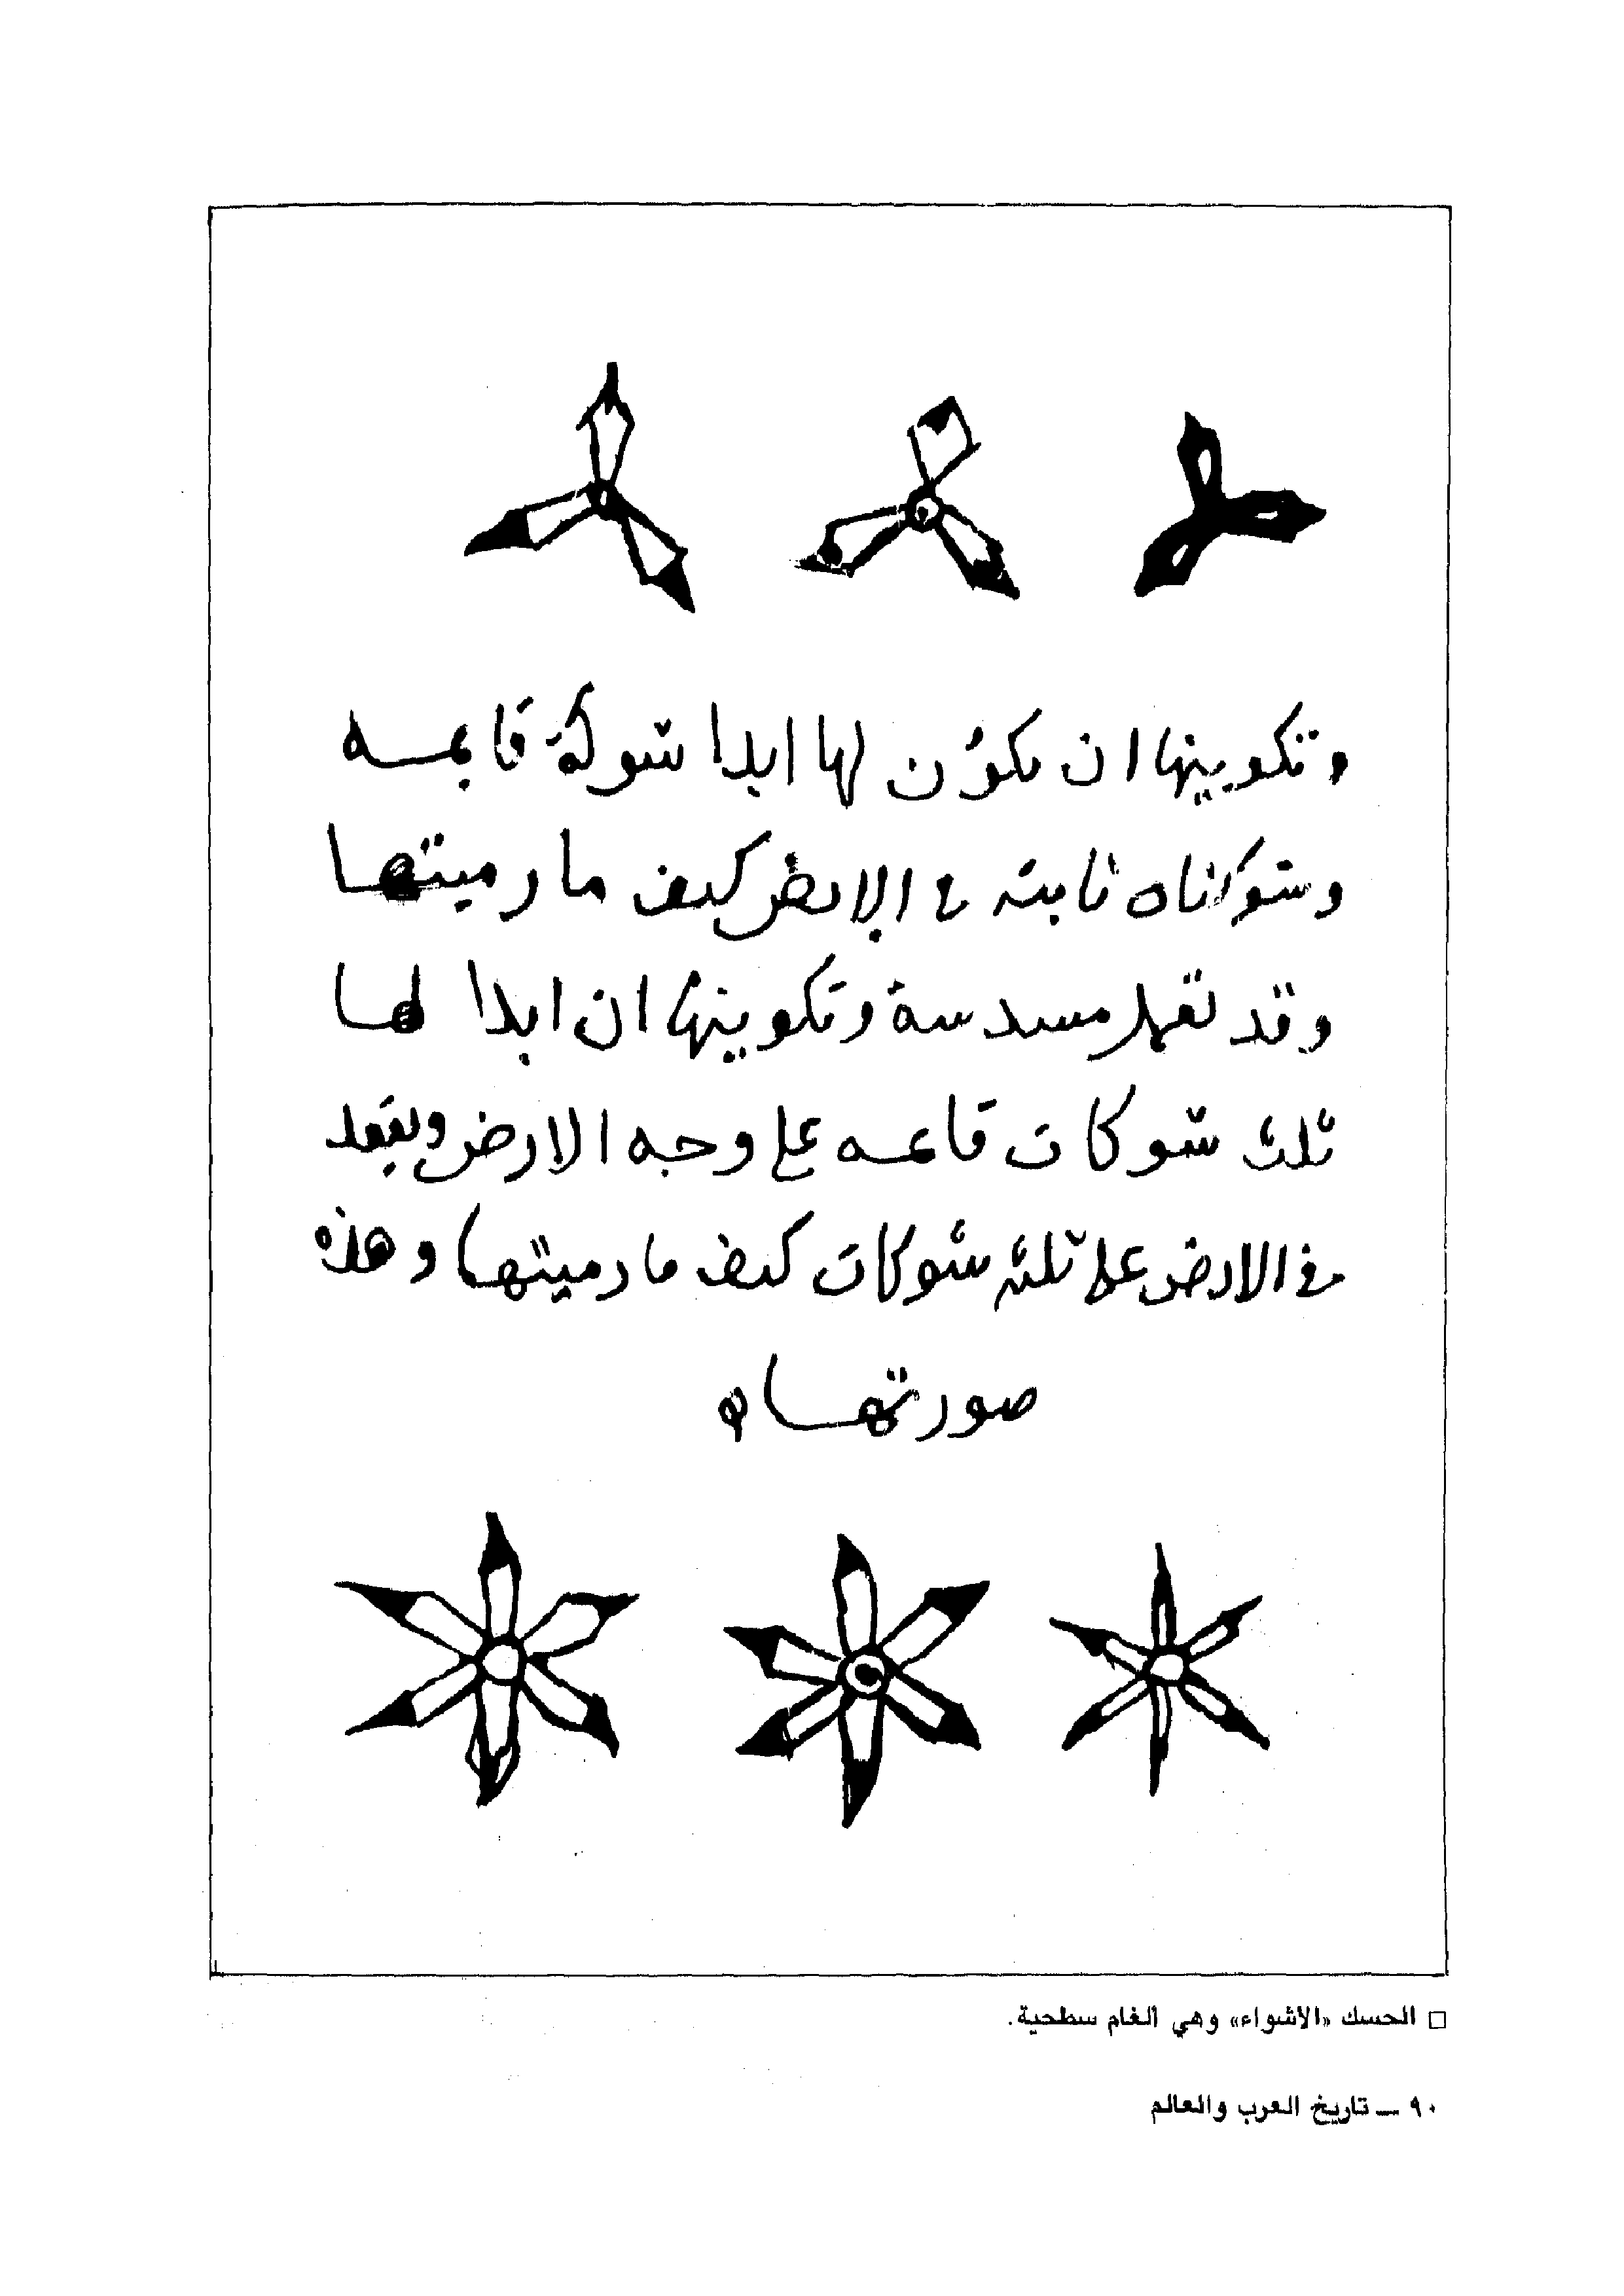 وتكوينها ان تكون لها ابدا شوكة قايمه
وشوكتاه ثابته في الارض كيف ما رميتها
وقد تعمل مسدسة وتكوينها ان ابدا لها
ثلث شوكات قايمه على وجه الارض ويقعد
في الارض على ثلثه شوكات كيف ما رميتها وهذه
صورتها ه
□ الحسك «الاشواء» وهي ألغام سطحية.
٩٠ — تاريخ العرب والعالم